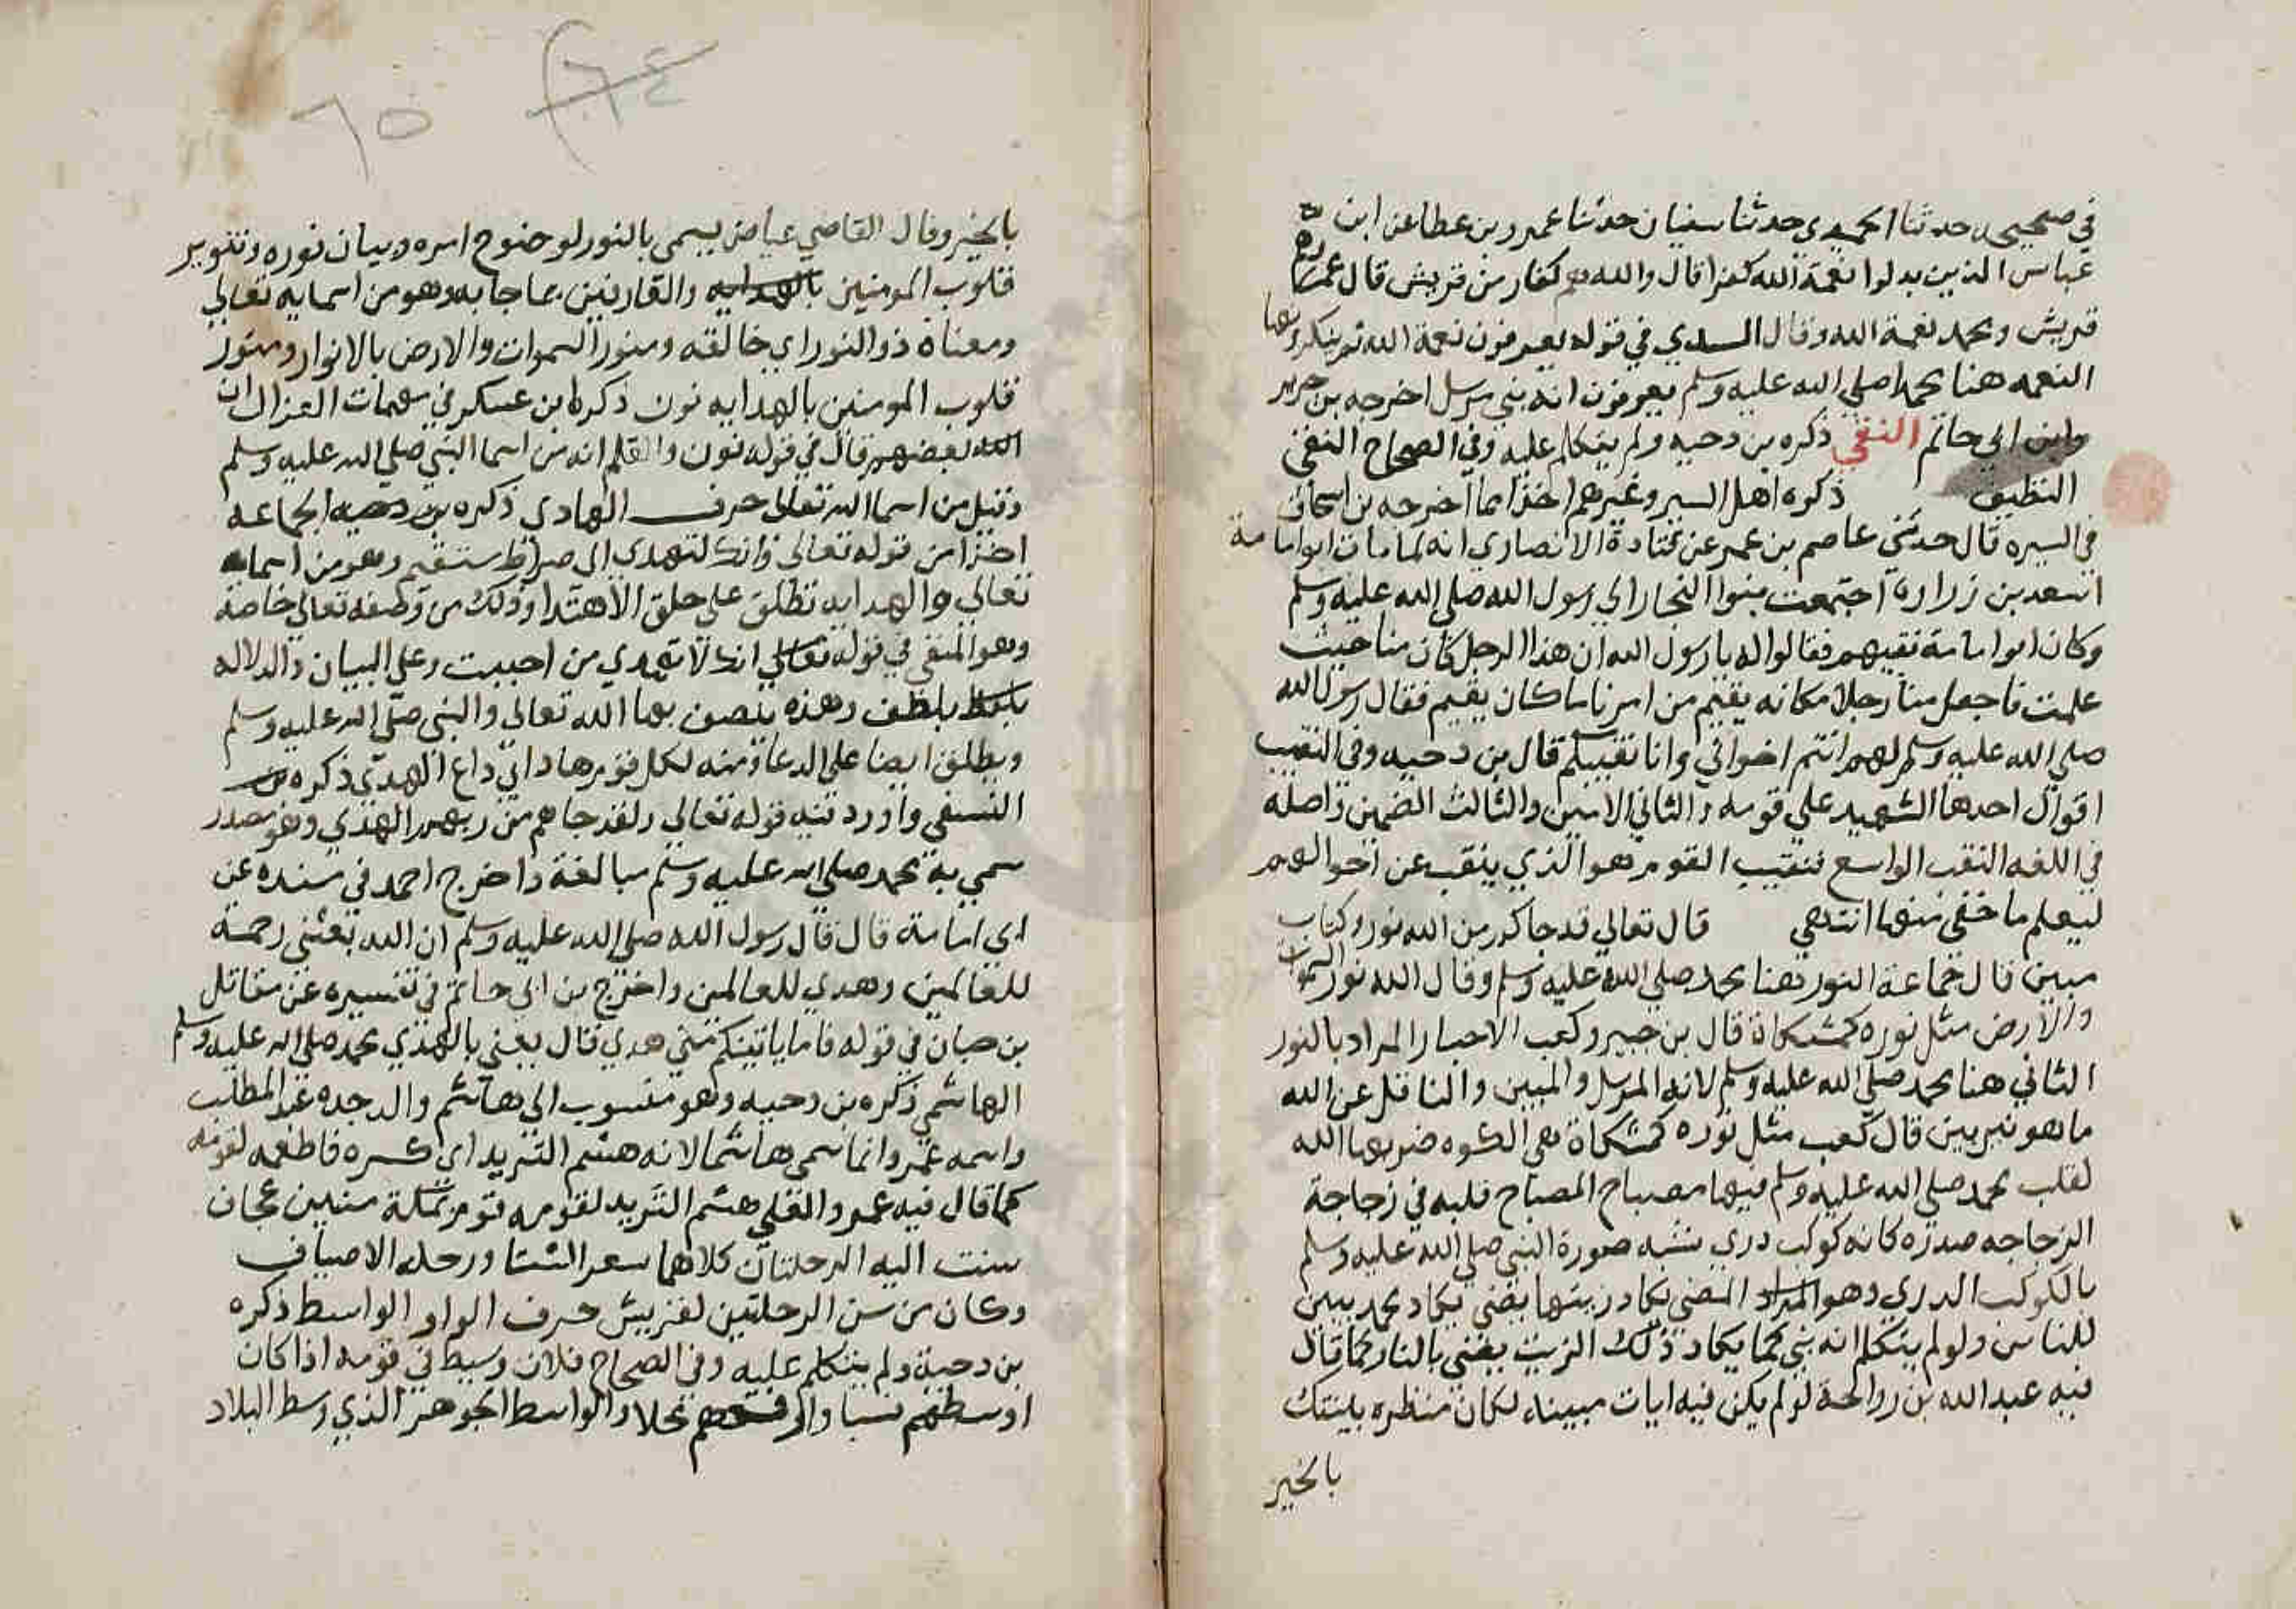 في صحيحه حدثنا الحميدي حدثنا سفيان حدثنا عمرو بن عطا عن ابن
عباس الذين بدلوا نعمة الله كفرا قال والله هم كفار من قريش قال عمرو هم
قريش ومحمد نعمة الله وقال السدي في قوله يعرفون نعمة الله ثم ينكرونها
النعمه هنا محمد صلى الله عليه وسلم يعرفون انه نبي مرسل اخرجه بن جرير
وابن ابي حاتم النقي ذكره بن دحيه ولم يتكلم عليه وفي الصحاح النقي
النظيف ذكره اهل السير وغيرهم اخذا مما اخرجه بن اسحاق
في السيره قال حدثني عاصم بن عمر عن قتادة الانصاري انه لما مات ابو امامة
اسعد بن زرارة اجتمعت بنوا النجار الي رسول الله صلى الله عليه وسلم
وكان ابو امامة نقيبهم فقالوا له يا رسول الله ان هذا الرجل كان منا حيث
علمت فاجعل منا رجلا مكانه يقيم من امرنا ما كان يقيم فقال رسول الله
صلى الله عليه وسلم لهم انتم اخواني وانا نقيبكم قال بن دحيه وفي النقيب
اقوال احدها الشهيد علي قومه والثاني الامين والثالث الضمين واصله
في اللغه النقب الواسع فنقيب القوم هو الذي ينقب عن احوالهم
ليعلم ما خفي منها انتهي قال تعالي قد جاكم من الله نور وكتاب
مبين قال جماعة النور هنا محمد صلى الله عليه وسلم وقال الله نور السموات
والارض مثل نوره كمشكاة قال بن جبير وكعب الاحبار المراد بالنور
الثاني هنا محمد صلى الله عليه وسلم لانه المرسل والمبين والناقل عن الله
ما هو نير بين قال كعب مثل نوره كمشكاة هي الكوه ضربها الله
لقلب محمد صلى الله عليه وسلم فيها مصباح المصباح قلبه في زجاجة
الزجاجه صدره كانه كوكب دري يشبه صورة النبي صلى الله عليه وسلم
بالكوكب الدري وهو المراد المضي يكاد زيتها يضي يكاد محمد يبين
للناس ولو لم يتكلم انه نبي كما يكاد ذلك الزيت يضي بالنار كما قال
فيه عبد الله بن رواحة لو لم يكن فيه ايات مبينه لكان منظره ينبيك
بالخير
٦٤
٦٥
بالخير وقال القاضي عياض يسمي بالنور لوضوح امره وبيان نوره وتنوير
قلوب المومنين بالهدايه والعارفين بما جا به وهو من اسمايه تعالي
ومعناه ذو النور اي خالقه ومنور السموات والارض بالانوار ومنور
قلوب المومنين بالهدايه نون ذكره ابن عسكر في مبهمات القران
الله بعضهم قال في قوله نون والقلم انه من اسما النبي صلى الله عليه وسلم
وقيل من اسما الله تعالى حرف الهادي ذكره بن دحيه الجماعه
اخذا من قوله تعالي وانك لتهدي الى صراط مستقيم وهو من اسمايه
تعالي والهدايه تطلق علي خلق الاهتدا وذلك من وصفه تعالي خاصة
وهو المنفي في قوله تعالي انك لا تهدي من احببت وعلي البيان والدلاله
بلطف وهذه يتصف بها الله تعالي والنبي صلى الله عليه وسلم
ويطلق ايضا علي الدعا ومنه لكل قوم هاد اي داع الهدي ذكره
النسفي واورد فيه قوله تعالي ولقد جاهم من ربهم الهدي وهو مصدر
سمي به محمد صلى الله عليه وسلم مبالغة واخرج احمد في مسنده عن
ابي امامة قال قال رسول الله صلى الله عليه وسلم ان الله بعثني رحمة
للعالمين وهدي للعالمين واخرج بن ابي حاتم في تفسيره عن مقاتل
بن حبان في قوله فاما ياتينكم مني هدي قال يعني بالهدي محمد صلى الله عليه وسلم
الهاشمي ذكره بن دحيه وهو منسوب الي هاشم والد جده عبد المطلب
واسمه عمرو وانما سمي هاشما لانه هشم الثريد اي كسره فاطعمه لقومه
كما قال فيه عمرو العلي هشم الثريد لقومه قوم بمكة مسنتين عجاف
سنت اليه الرحلتان كلاهما سفر الشتا ورحله الاصياف
وكان من سن الرحلتين لقريش حرف الواو الواسط ذكره
بن دحية ولم يتكلم عليه وفي الصحاح فلان وسيط في قومه اذا كان
اوسطهم نسبا وارفعهم محلا والواسط الجوهر الذي وسط البلاد